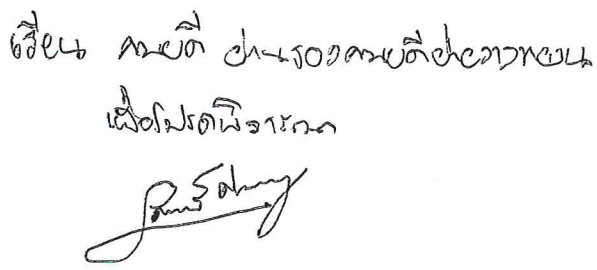 เรียน คณบดี ผ่านรองคณบดีฝ่ายวางแผน
เพื่อโปรดพิจารณา